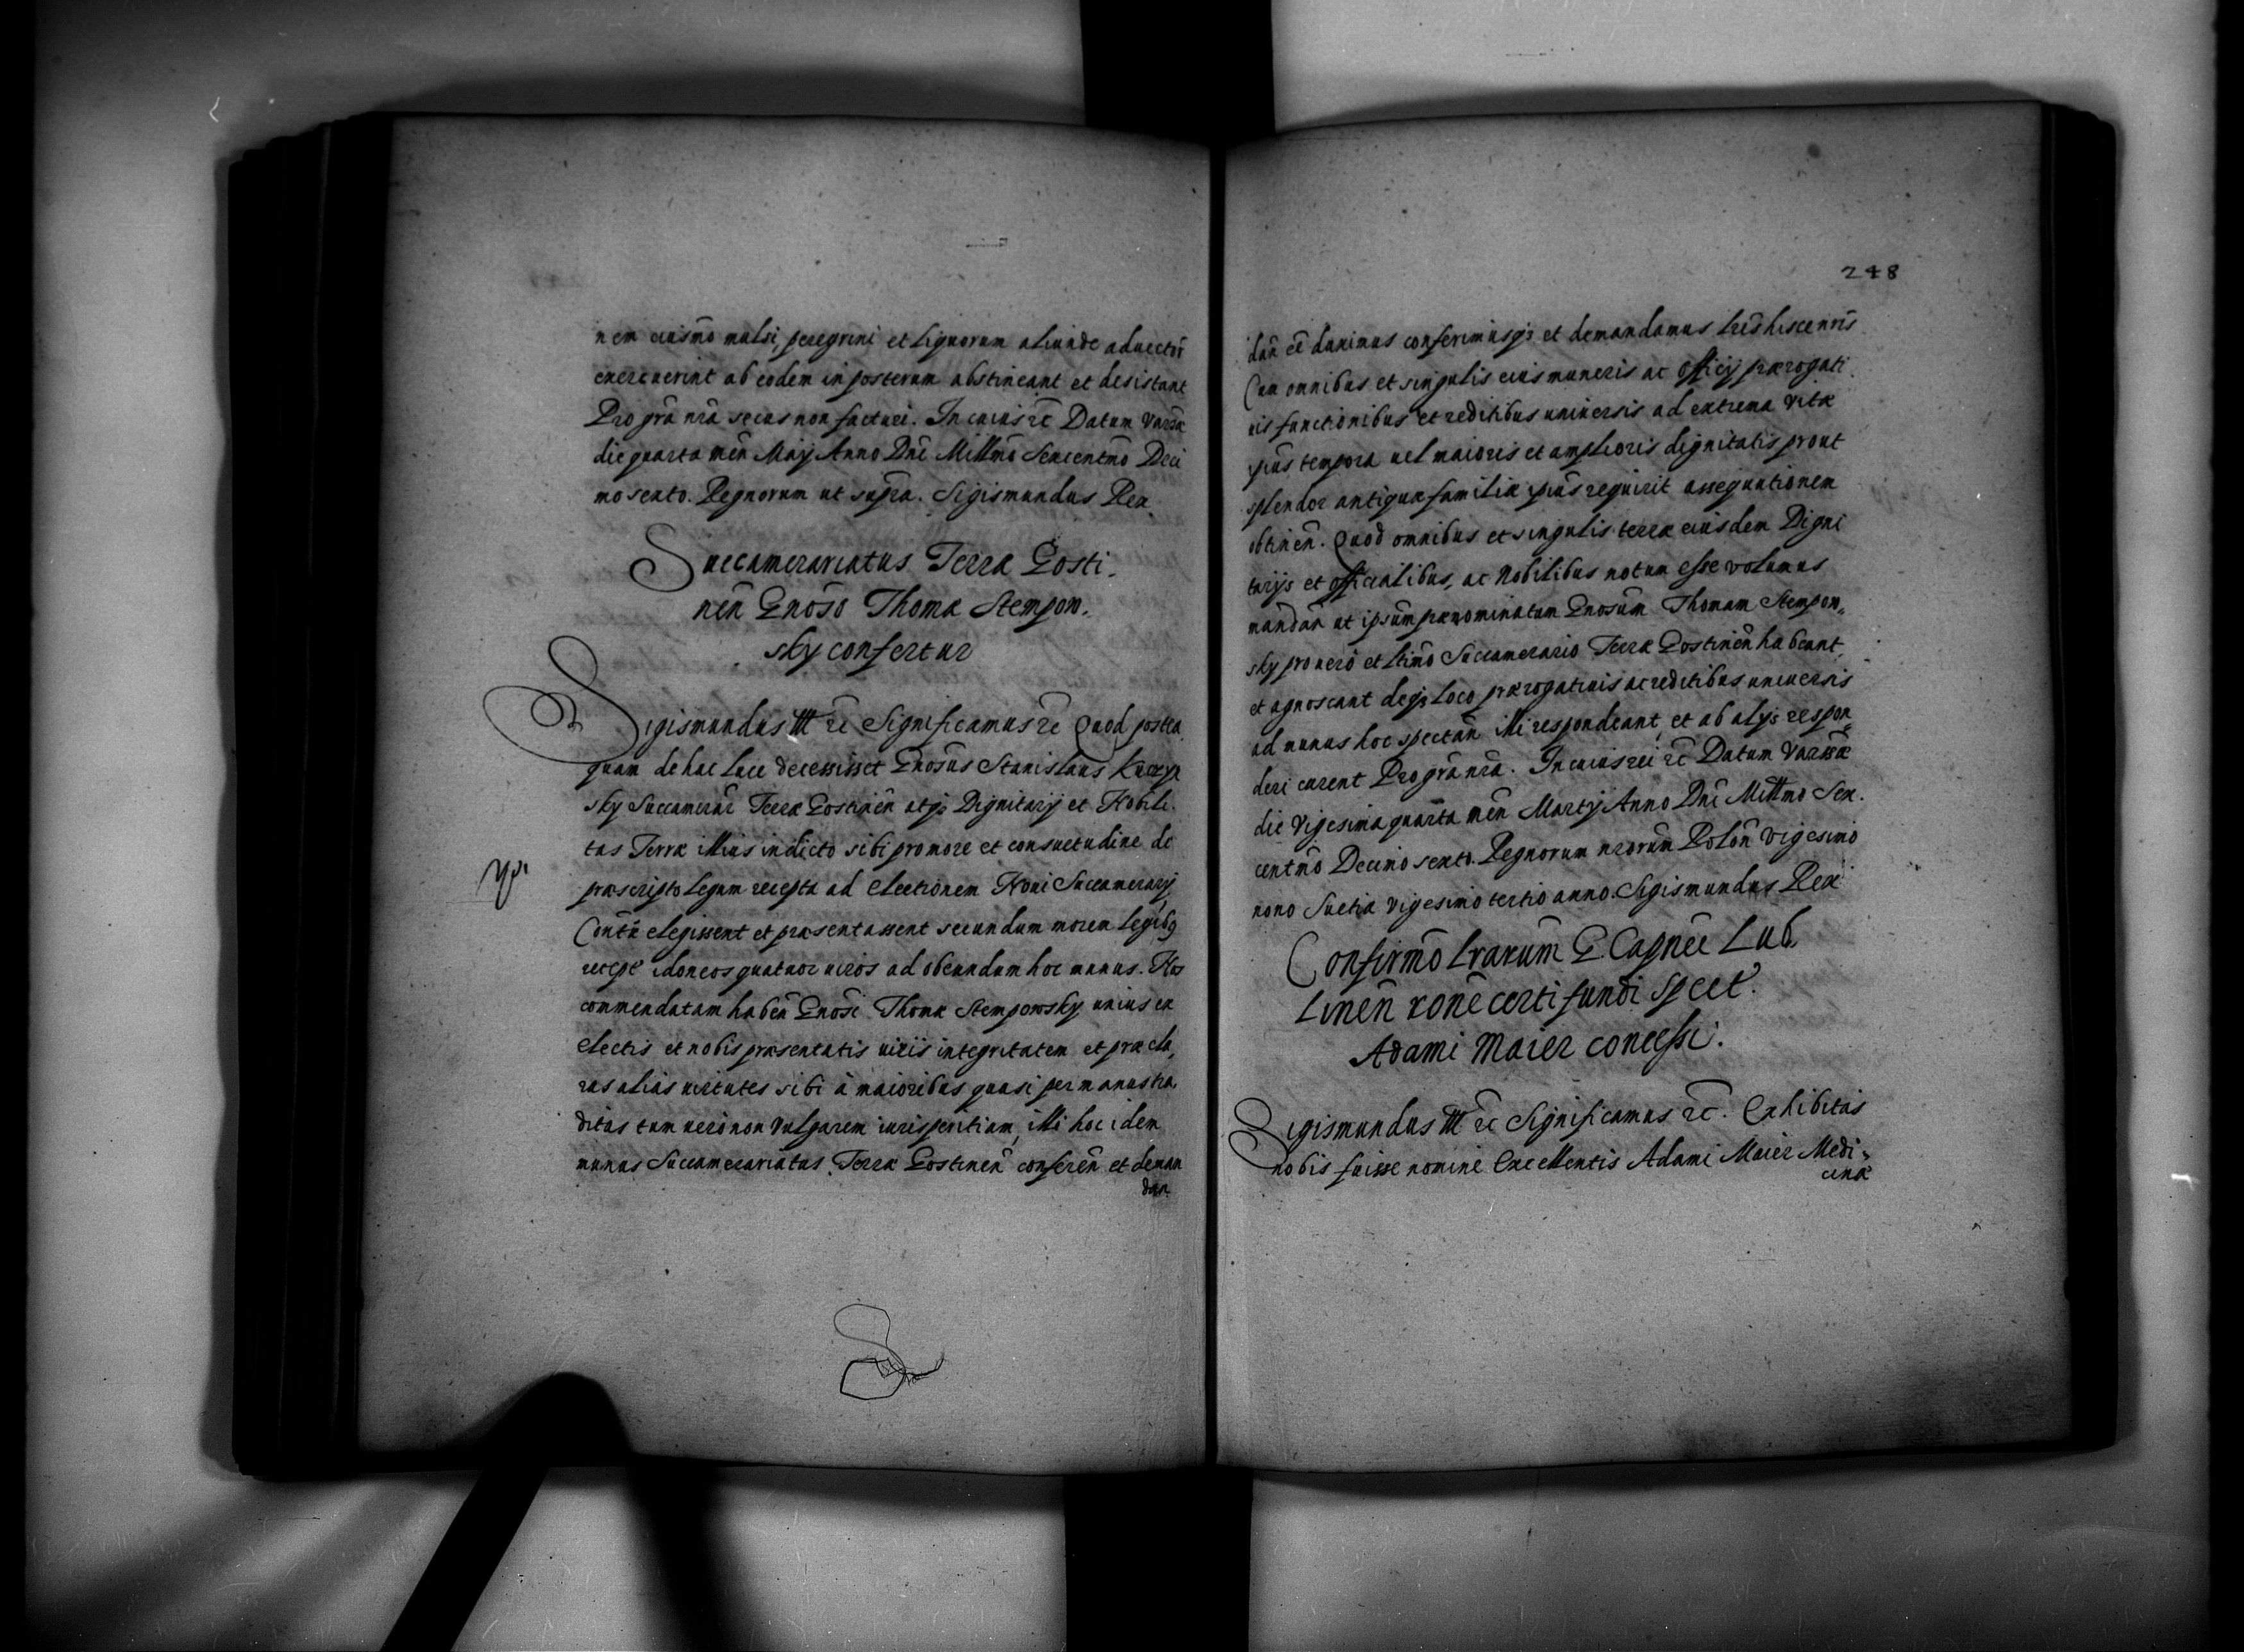 nem eiusmo mulsi, peregrini et liquorum aliunde aduector̄
exercuerint ab eodem in posterum abstineant et desistant
Pro gr̄a nr̄a secus non facturi. In cuius rc̄ Datum Varsæ
die quarta men̄ Maij Anno Dnī Millm̄o Sexcentm̄o Deci
mo sexto. Regnorum ut supra. Sigismundus Rex.
Succamerariatus Terræ Gosti.
nen̄ Gnōso Thomæ Stempow.
sky confertur
Sigismundus III rc̄ Significamus rc̄ Quod postea
quam de hac luce decessisset Gnōsus Stanislaus
sky Succamerar̄ Terræ Gostinen̄ atq3 Dignitarij et Nobili.
tas Terræ illius indicto sibi pro more et consuetudine de
præscripto legum recepta ad electionem Noui Succamerarij
Conūtu elegissent et præsentassent secundum morem legib9
recept̄ idoneos quatuor uiros ad obeundum hoc munus. Nos
commendatam haben̄ Gnōsi Thomæ Stempowsky unius ex
electis et nobis præsentatis uiris integritatem et præcla,
ras alias uirtutes sibi à maioribus quasi per manus tra.
ditas tum uero non vulgarem iurisperitiam, illi hoc idem
munus Succamerariatus Terræ Gostinen̄ conferen̄ et deman
dan̄
248
dan̄ eē duximus conferimusq3 et demandamus lr̄is hisce nr̄is
Cum omnibus et singulis eius muneris ac officij prærogati.
uis functionibus et reditibus uniuersis ad extrema vitæ
ipsius tempora uel maioris et amplioris dignitatis prout
splendor antiquæ familiæ ipsius requirit assequutionem
obtinen̄. Quod omnibus et singulis terræ eiusdem Digni
tarijs et officialibus, ac Nobilibus notum esse volumus
mandan̄ ut ipsum prænominatum Gnōsum Thomam Stempow„
sky pro uero et ltīmo Succamerario Terræ Gostinen̄ habeant
et agnoscant deq3 loco prærogatiuis ac reditibus uniuersis
ad munus hoc spectan̄ illi respondeant, et ab alijs respon„
deri curent Pro gr̄a nr̄a. In cuius rei rc̄ Datum Varssæ
die Vigesima quarta men̄ Martij Anno Dnī Millmo Sex.
centm̄o Decimo sexto. Regnorum nr̄orum Polon̄ vigesimo
nono Suetiæ vigesimo tertio anno. Sigismundus Rex
Confirmō lr̄arum G. Lub.
linen̄ rōne certi fundi Spect.
Adami Maier concessi.
Sigismundus III rc̄ Significamus rc̄. Exhibitas
nobis fuisse nomine Excellentis Adami Maier Medi„
cinæ